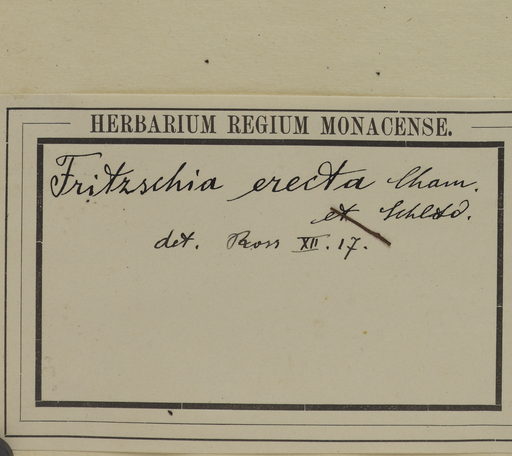 HERBARIUM REGIUM MONACENSE.
Fritzschia erecta Cham.
et Schltd.
det. Ross XII. 17.